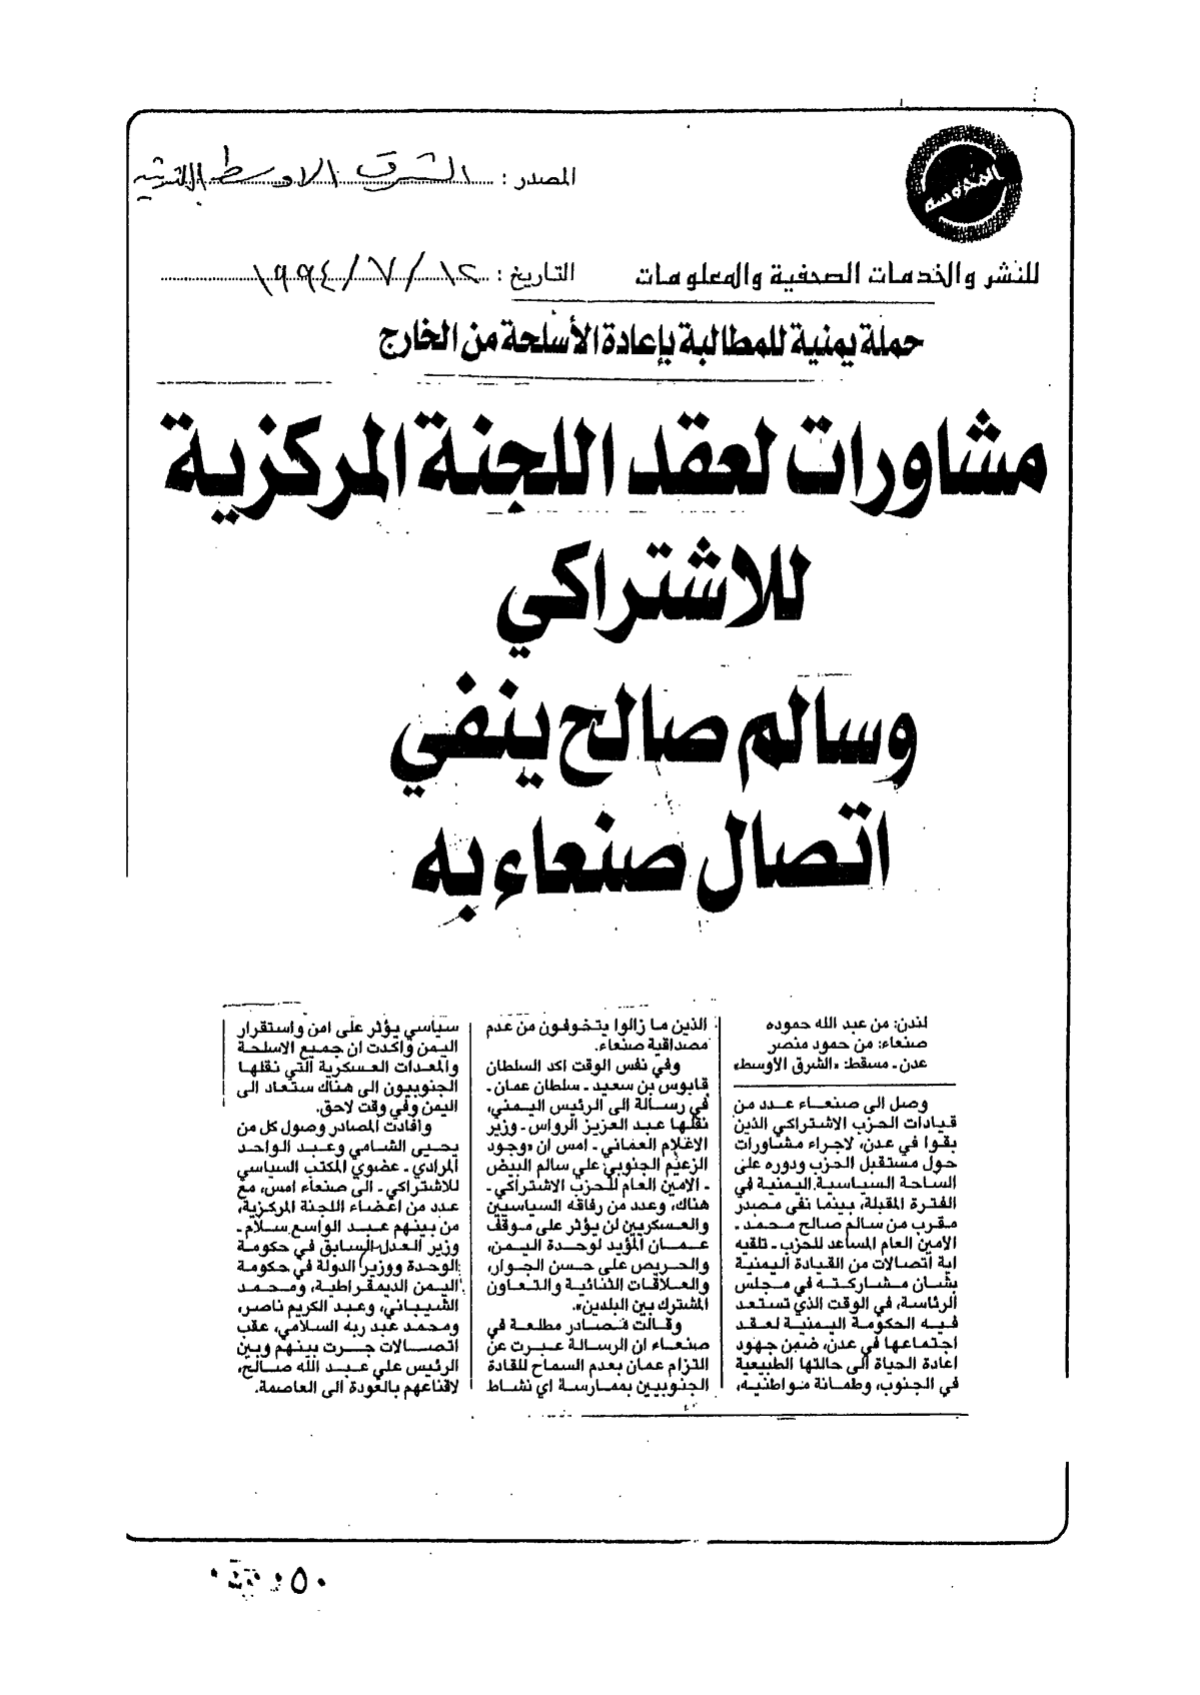 المحروسة
المصدر : الشرق الاوسط اللندنية
للنشر والخدمات الصحفية والمعلومات
التاريخ : ١٢ / ٧ / ١٩٩٤
حملة يمنية للمطالبة بإعادة الأسلحة من الخارج
مشاورات لعقد اللجنة المركزية
للاشتراكي
وسالم صالح ينفي
اتصال صنعاء به
لندن: من عبد الله حموده
صنعاء: من حمود منصر
عدن ـ مسقط: «الشرق الأوسط»
وصل الى صنعاء عدد من
قيادات الحزب الاشتراكي الذين
بقوا في عدن، لاجراء مشاورات
حول مستقبل الحزب ودوره على
الساحة السياسية اليمنية في
الفترة المقبلة، بينما نفى مصدر
مقرب من سالم صالح محمد ـ
الامين العام المساعد للحزب ـ تلقيه
اية اتصالات من القيادة اليمنية
بشان مشاركته في مجلس
الرئاسة، في الوقت الذي تستعد
فيه الحكومة اليمنية لعقد
اجتماعها في عدن، ضمن جهود
اعادة الحياة الى حالتها الطبيعية
في الجنوب، وطمانة مواطنيه،
الذين ما زالوا يتخوفون من عدم
مصداقية صنعاء.
وفي نفس الوقت اكد السلطان
قابوس بن سعيد ـ سلطان عمان ـ
في رسالة الى الرئيس اليمني،
نقلها عبد العزيز الرواس ـ وزير
الاعلام العماني ـ امس ان «وجود
الزعيم الجنوبي علي سالم البيض
ـ الامين العام للحزب الاشتراكي ـ
هناك، وعدد من رفاقه السياسيين
والعسكريين لن يؤثر على موقف
عمان المؤيد لوحدة اليمن،
والحريص على حسن الجوار،
والعلاقات الثنائية والتعاون
المشترك بين البلدين».
وقالت مصادر مطلعة في
صنعاء ان الرسالة عبرت عن
التزام عمان بعدم السماح للقادة
الجنوبيين بممارسة اي نشاط
سياسي يؤثر على امن واستقرار
اليمن واكدت ان جميع الاسلحة
والمعدات العسكرية التي نقلها
الجنوبيون الى هناك ستعاد الى
اليمن وفي وقت لاحق.
وافادت المصادر وصول كل من
يحيى الشامي وعبد الواحد
المرادي ـ عضوي المكتب السياسي
للاشتراكي ـ الى صنعاء امس، مع
عدد من اعضاء اللجنة المركزية،
من بينهم عبد الواسع سلام ـ
وزير العدل السابق في حكومة
الوحدة ووزير الدولة في حكومة
اليمن الديمقراطية، ومحمد
الشيباني، وعبد الكريم ناصر،
ومحمد عبد ربه السلامي، عقب
اتصالات جرت بينهم وبين
الرئيس علي عبد الله صالح،
لاقناعهم بالعودة الى العاصمة.